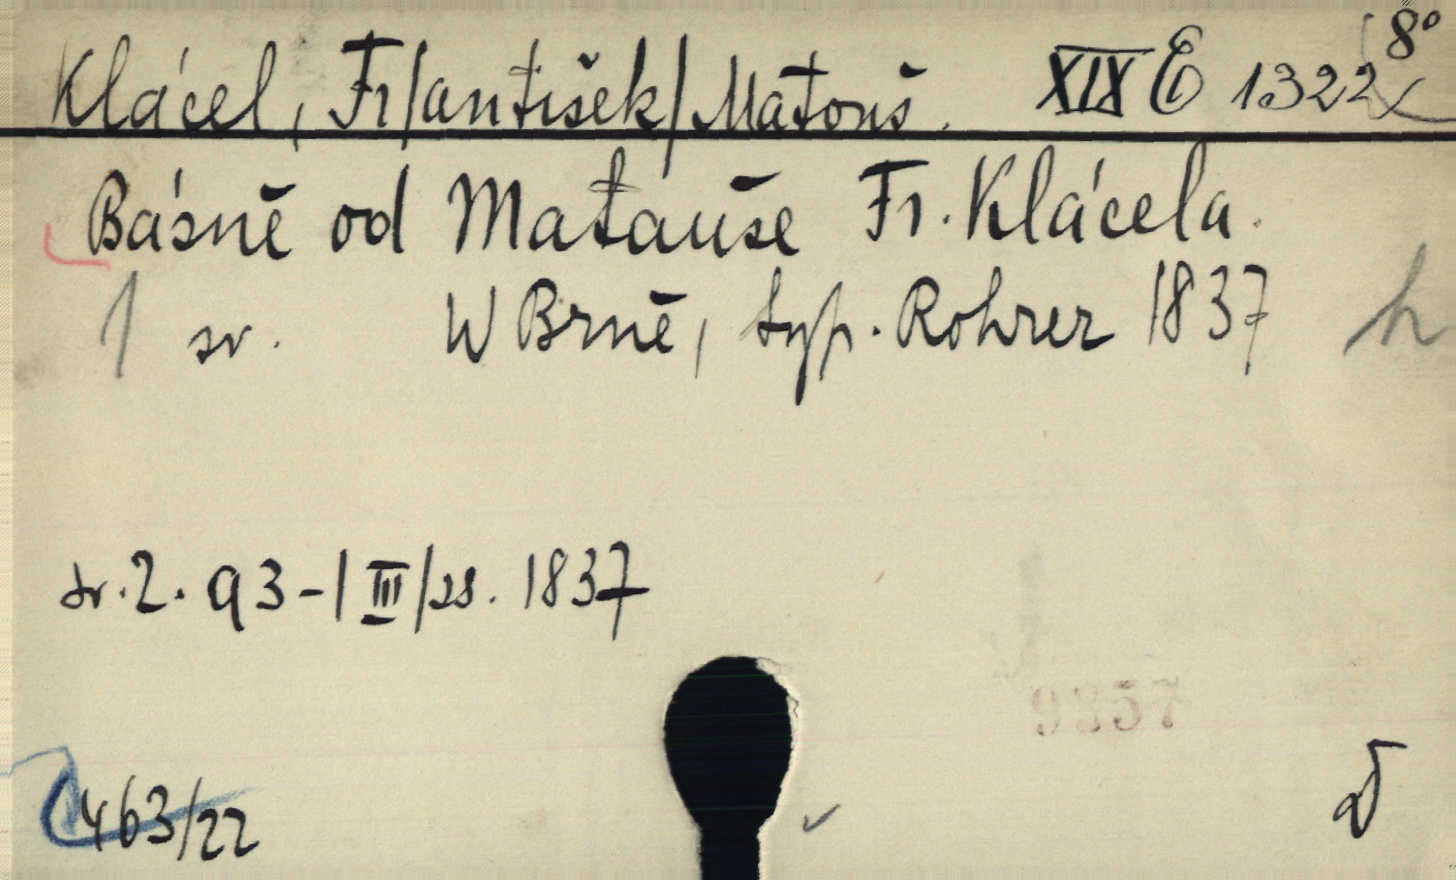 Klácel, Fr/antišek/ Matouš. XIX E 1322 8°
Básně od Matauše Fr. Klácela.
1 sv. W Brně, typ. Rohrer 1837 h
2. 93-1 III/28. 1837
463/22